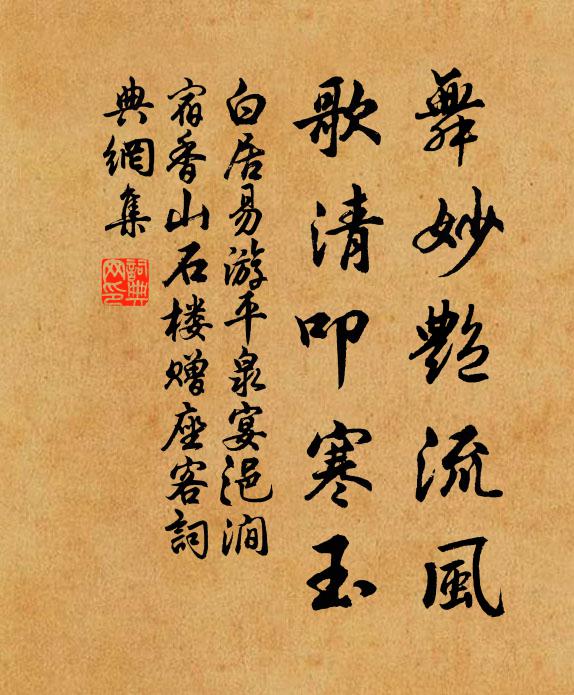 舞妙艶流風
歌清叩寒玉
白居易游平泉宴浥澗
宿香山石楼赠座客詞
典網集
詞典
网印